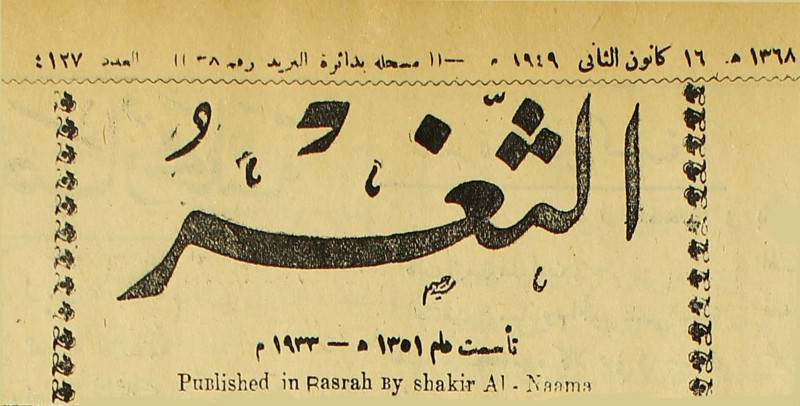 ١٣٦٨ هـ ١٦ كانون الثاني ١٩٤٩ م —١١ مسجله بدائرة البريد رقم ٣٨ ١١ العدد ٤١٢٧
الثَّغْرُ
تأسست عام ١٣٥١ ه — ١٩٣٣ م
Published in Basrah By shakir Al - Naama